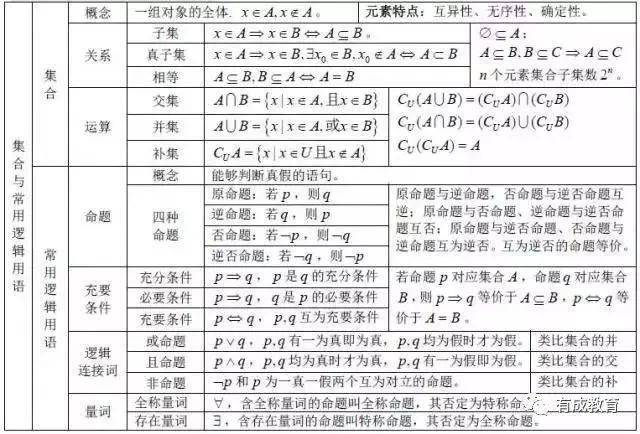 集合与常用逻辑用语
集合
概念
一组对象的全体. x∈A,x∉A 。
元素特点：互异性、无序性、确定性。
关系
子集
x∈A⇒x∈B⇔A⊆B 。
真子集
x∈A⇒x∈B,∃x₀∈B,x₀∉A⇔A⊂B
相等
A⊆B,B⊆A⇔A=B
∅⊆A；
A⊆B,B⊆C⇒A⊆C
n个元素集合子集数2ⁿ。
运算
交集
A∩B={x|x∈A,且x∈B}
并集
A∪B={x|x∈A,或x∈B}
补集
C_U A={x|x∈U且x∉A}
C_U(A∪B)=(C_U A)∩(C_U B)
C_U(A∩B)=(C_U A)∪(C_U B)
C_U(C_U A)=A
常用逻辑用语
命题
概念
能够判断真假的语句。
四种
命题
原命题：若p，则q
逆命题：若q，则p
否命题：若¬p，则¬q
逆否命题：若¬q，则¬p
原命题与逆命题，否命题与逆否命题互
逆；原命题与否命题、逆命题与逆否命
题互否；原命题与逆否命题、否命题与
逆命题互为逆否。互为逆否的命题等价。
充要
条件
充分条件
p⇒q，p是q的充分条件
必要条件
p⇒q，q是p的必要条件
充要条件
p⇔q，p,q互为充要条件
若命题p对应集合A，命题q对应集合
B，则p⇒q等价于A⊆B，p⇔q等
价于A=B。
逻辑
连接词
或命题
p∨q，p,q有一为真即为真，p,q均为假时才为假。
类比集合的并
且命题
p∧q，p,q均为真时才为真，p,q有一为假即为假。
类比集合的交
非命题
¬p和p为一真一假两个互为对立的命题。
类比集合的补
量词
全称量词
∀，含全称量词的命题叫全称命题，其否定为特称命
存在量词
∃，含存在量词的命题叫特称命题，其否定为全称命题。
有成教育